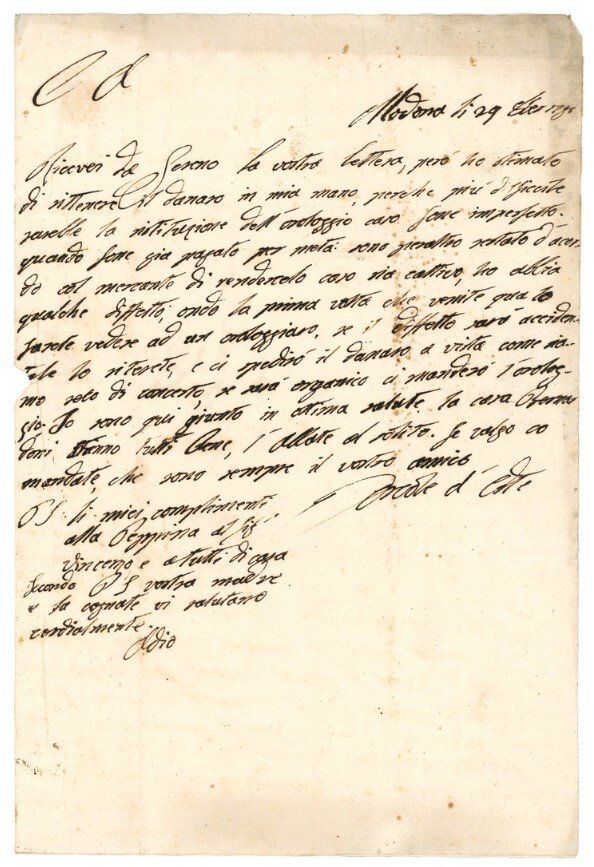 C A
Modena li 29
Ricevei da Sereno la vostra lettera, però ho stimato
di rittenere il danaro in mia mano, perche piú dificile
sarebbe la ristituzione dell'orologgio caso fosse imperfetto.
quando fosse gia pagato per metá: sono peraltro restato d'acor
do col mercante di renderselo caso sia cattivo, ho abbia
qualche diffetto, onde la prima volta che venite qua lo
farete vedere ad un orologgiaro, se il diffetto sará acciden
tale lo riterete, e ci spediró il danaro a vista come sia
mo soto di concerto, se sará organico ci manderó l'orolog
gio. Io sono qui giunto in ottima salute. la casa
stanno tutti bene, l'Abbate al solito. Se valgo co
mandate, che sono sempre il vostro amico
Ercole d'Este
PS li miei complimenti
alla Peppina al Sig
Vincenzo e a tutti di casa
Secondo PS vostra madre
e la cognata vi salutano
cordialmente.
Adio